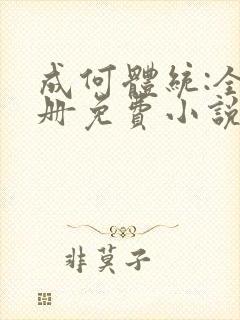 成何體統:全
册免費小說
非莫子